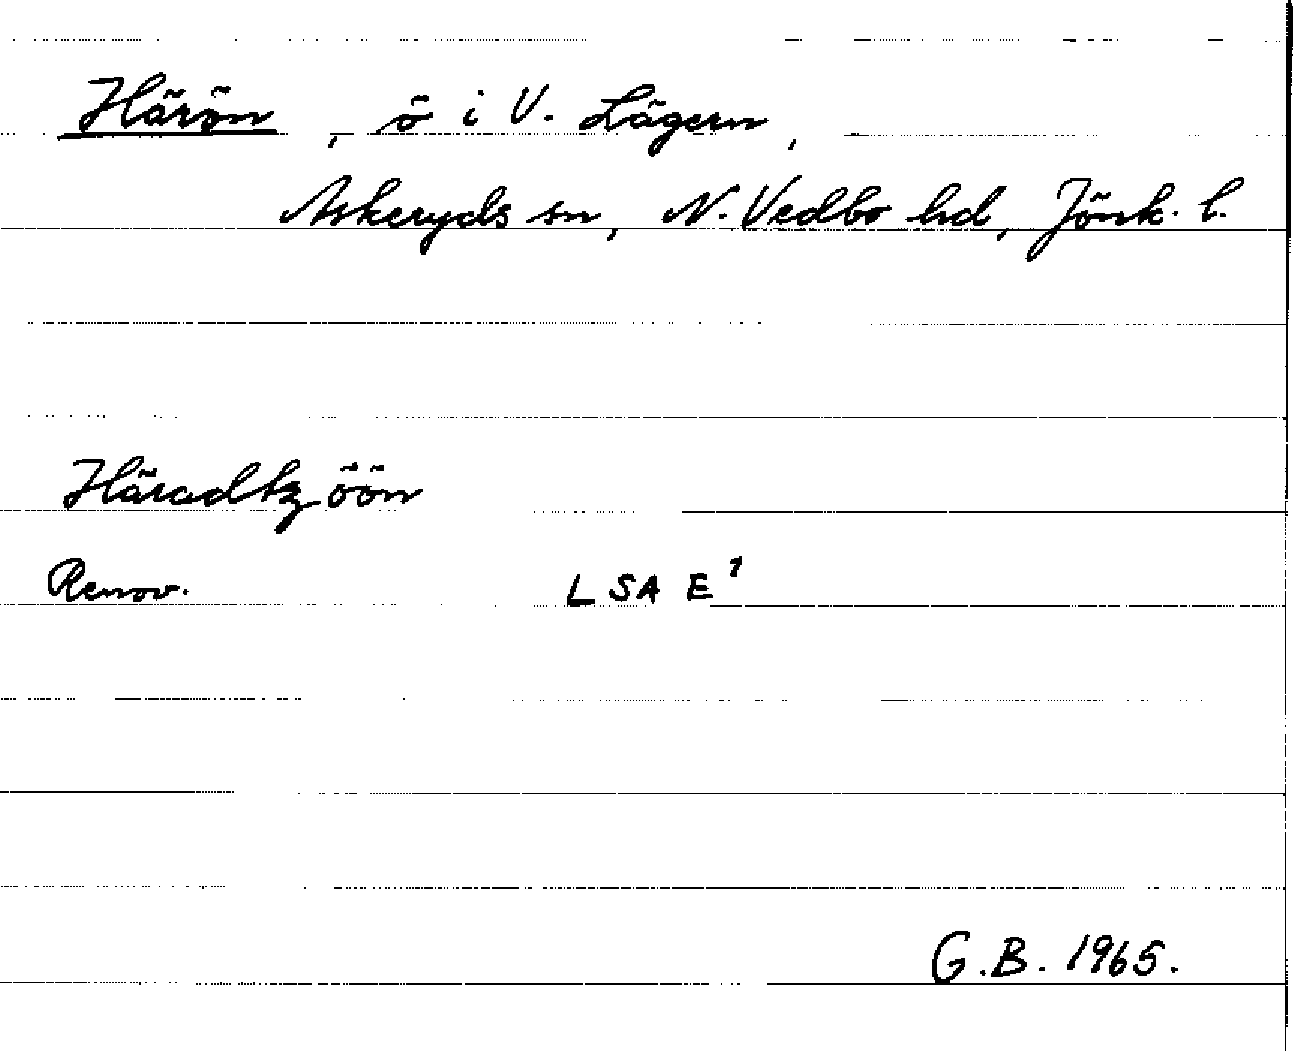 Härön, ö i V. Lägern,
Askeryds sn, N. Vedbo hd, Jönk. l.
Häradtzöön
Renov. LSA E1
G.B. 1965.